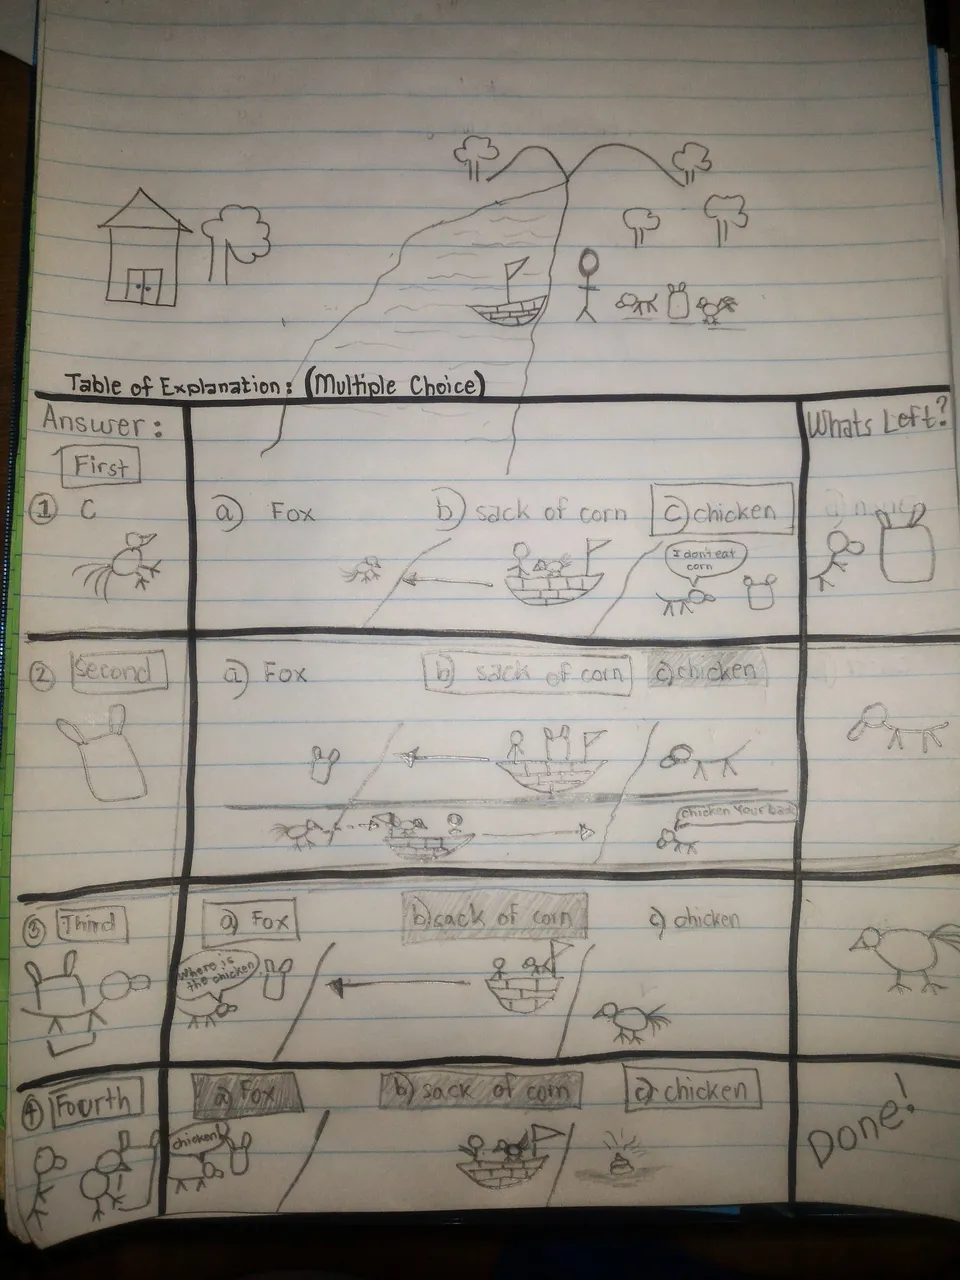 Table of Explanation: (Multiple Choice)
Answer:
Whats Left?
First
① C
a) Fox
b) sack of corn
c) chicken
I don't eat
corn
② Second
a) Fox
b) sack of corn
c) chicken
chicken your back
③ Third
a) Fox
b) sack of corn
c) chicken
Where is
the chicken
④ Fourth
a) Fox
b) sack of corn
c) chicken
chicken!
Done!